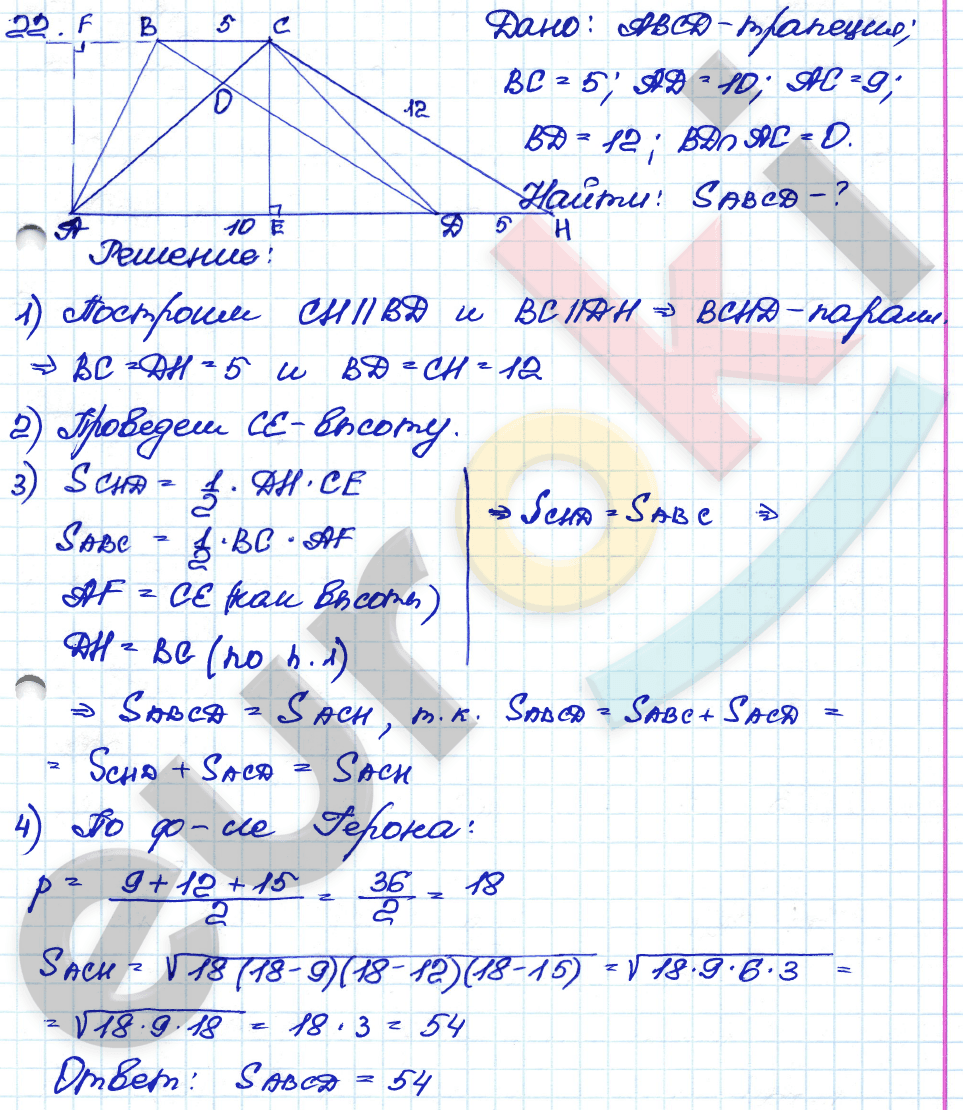 22. F B 5 C
O
12
A 10 E D 5 H
Дано: ABCD - трапеция;
BC = 5; AD = 10; AC = 9;
BD = 12; BD∩AC = O.
Найти: SABCD - ?
Решение:
1) Построим CH || BD и BC || DH ⇒ BCHD - парал.
⇒ BC = DH = 5 и BD = CH = 12
2) Проведем CE - высоту.
3) SCHD = 1/2 · DH · CE
SABC = 1/2 · BC · AF
AF = CE (как высоты)
DH = BC (по п. 1)
⇒ SCHD = SABC ⇒
⇒ SABCD = SACH, т.к. SABCD = SABC + SACD =
= SCHD + SACD = SACH
4) По ф-ле Герона:
p = (9 + 12 + 15)/2 = 36/2 = 18
SACH = √18 (18 - 9)(18 - 12)(18 - 15) = √18 · 9 · 6 · 3 =
= √18 · 9 · 18 = 18 · 3 = 54
Ответ: SABCD = 54
euroki